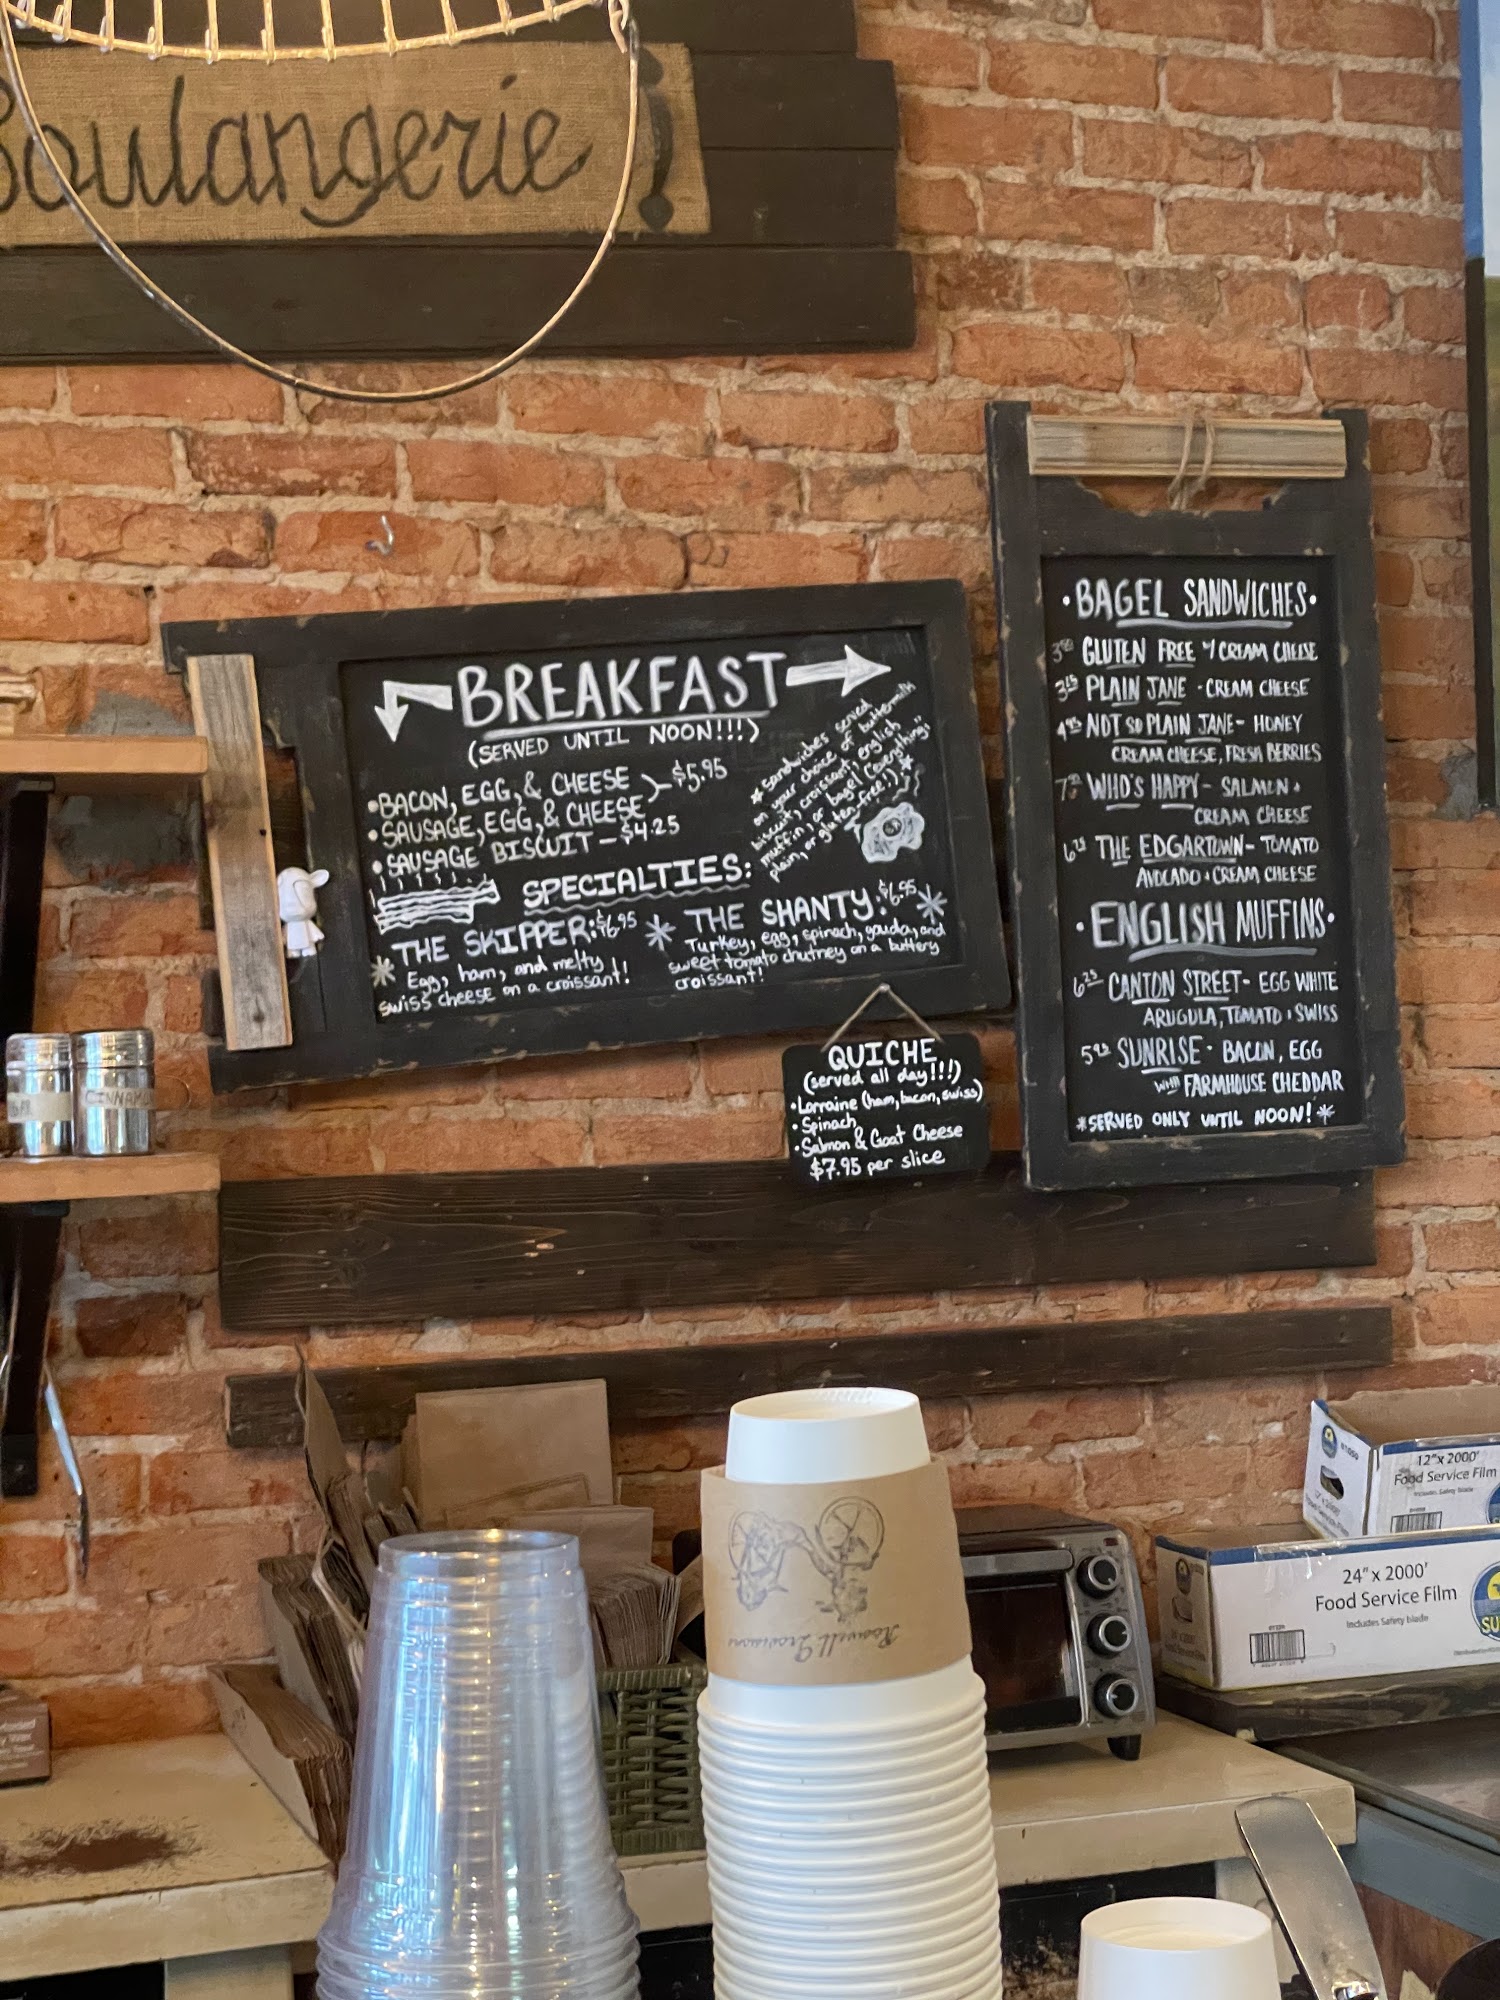 Boulangerie
BREAKFAST
(SERVED UNTIL NOON!!!)
•BACON, EGG, & CHEESE
•SAUSAGE, EGG, & CHEESE
$5.95
•SAUSAGE BISCUIT - $4.25
*Sandwiches served
on your choice of buttermilk
biscuit, croissant, english
muffin, or bagel (everything,
plain, or gluten-free!)*
SPECIALTIES:
THE SKIPPER: $6.95
Egg, ham, and melty
swiss cheese on a croissant!
THE SHANTY: $6.95
Turkey, egg, spinach, gouda, and
sweet tomato chutney on a buttery
croissant!
QUICHE
(served all day!!!)
•Lorraine (ham, bacon, swiss)
•Spinach
•Salmon & Goat Cheese
$7.95 per slice
•BAGEL SANDWICHES•
GLUTEN FREE w/ CREAM CHEESE
PLAIN JANE - CREAM CHEESE
NOT SO PLAIN JANE- HONEY
CREAM CHEESE, FRESH BERRIES
WHO'S HAPPY- SALMON +
CREAM CHEESE
6.25 THE EDGARTOWN- TOMATO
AVOCADO + CREAM CHEESE
•ENGLISH MUFFINS•
6.25 CANTON STREET- EGG WHITE
ARUGULA, TOMATO + SWISS
SUNRISE- BACON, EGG
WITH FARMHOUSE CHEDDAR
*SERVED ONLY UNTIL NOON!*
CINNAM
Roswell Provisions
12" x 2000'
Food Service Film
Includes Safety blade
24" x 2000'
Food Service Film
Includes Safety blade
SU